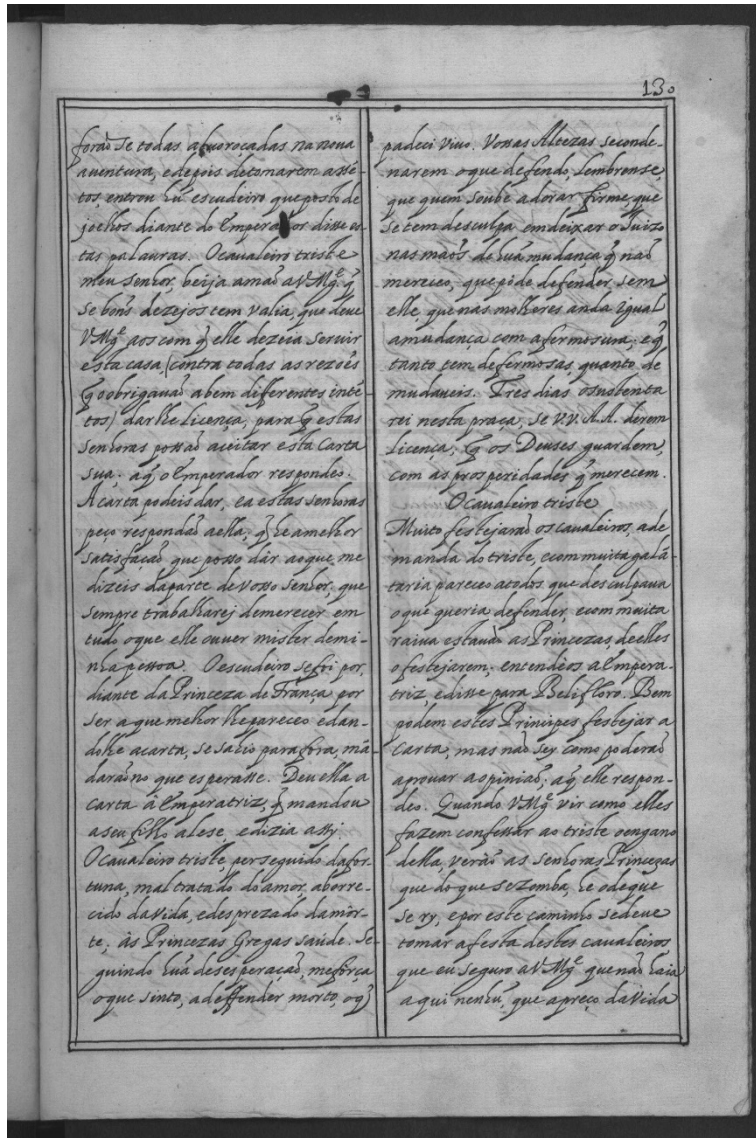 13.
forão se todas aluoroçadas na noua
auentura, e depois de tornarem assē-
tos, entrou hū escudeiro que posto de
joelhos diante do Emperador disse es-
tas palauras. O caualeiro triste
meu senhor, beija a mão a V Mg.e q̃
se bons dezejos tem valia, que deue
V Mg.e aos com q̃ elle dezeia seruir
esta casa (contra todas as rezões
q̃ o obrigauão a bem differentes intē-
tos) dar lhe licença, para q̃ estas
senhoras possão aceitar esta carta
sua; a q̃ o Emperador respondeo.
A carta podeis dar, e a estas senhoras
peço respondão a ella, q̃ he a melhor
satisfação que posso dar ao que me
dizeis da parte de vosso senhor, que
sempre trabalharej de merecer em
tudo o que elle ouuer mister de mi-
nha pessoa. O escudeiro se foi por
diante da Princeza de França por
ser a que melhor lhe pareceo e dan-
dolhe a carta, se sahio para fora, mā-
darãono que esperasse. Deu ella a
carta à Emperatriz, q̃ mandou
a seu filho a lese, e dizia assy.
O caualeiro triste, perseguido da for-
tuna, mal tratado do amor, aborre-
cido da vida, e desprezado da mor-
te; às Princezas Gregas saude. Se-
guindo hūa desesperação, me força
o que sinto, a deffender morto, o q̃
padeci viuo. Vossas Altezas se conde-
narem o que defendo, lembrense,
que quem soube adorar firme, que
se tem desculpa em deixar o Juizo
nas mãos de hūa mudança q̃ não
mereceo, que pode defender sem
elle, que nas molheres anda igual
a mudança com a fermosura; e q̃
tanto tem de fermosas, quanto de
mudaueis. Tres dias o sustenta
rei nesta praça, se V.V. A.A. derem
licença, q̃ os Deuses guardem,
com as prosperidades q̃ merecem.
O caualeiro triste
Muito festejarão os caualeiros, a de
manda do triste, e com muita galā-
taria pareceo a todos que desculpaua
o que queria defender, e com muita
raiua estauão as Princezas, de elles
o festejarem; entendeos a Empera-
triz, e disse para Belifloro. Bem
podem estes Principes festejar a
carta, mas não sey como poderão
aprouar a opinião; a q̃ elle respon-
deo. Quando V Mg.e vir como elles
fazem confessar ao triste o engano
della, verão as senhoras Princezas
que do que se zomba, he o de que
se ry, e por este caminho se deue
tomar a festa destes caualeiros
que eu seguro a V Mg.e que não haia
aqui nenhū, que a preço da vida